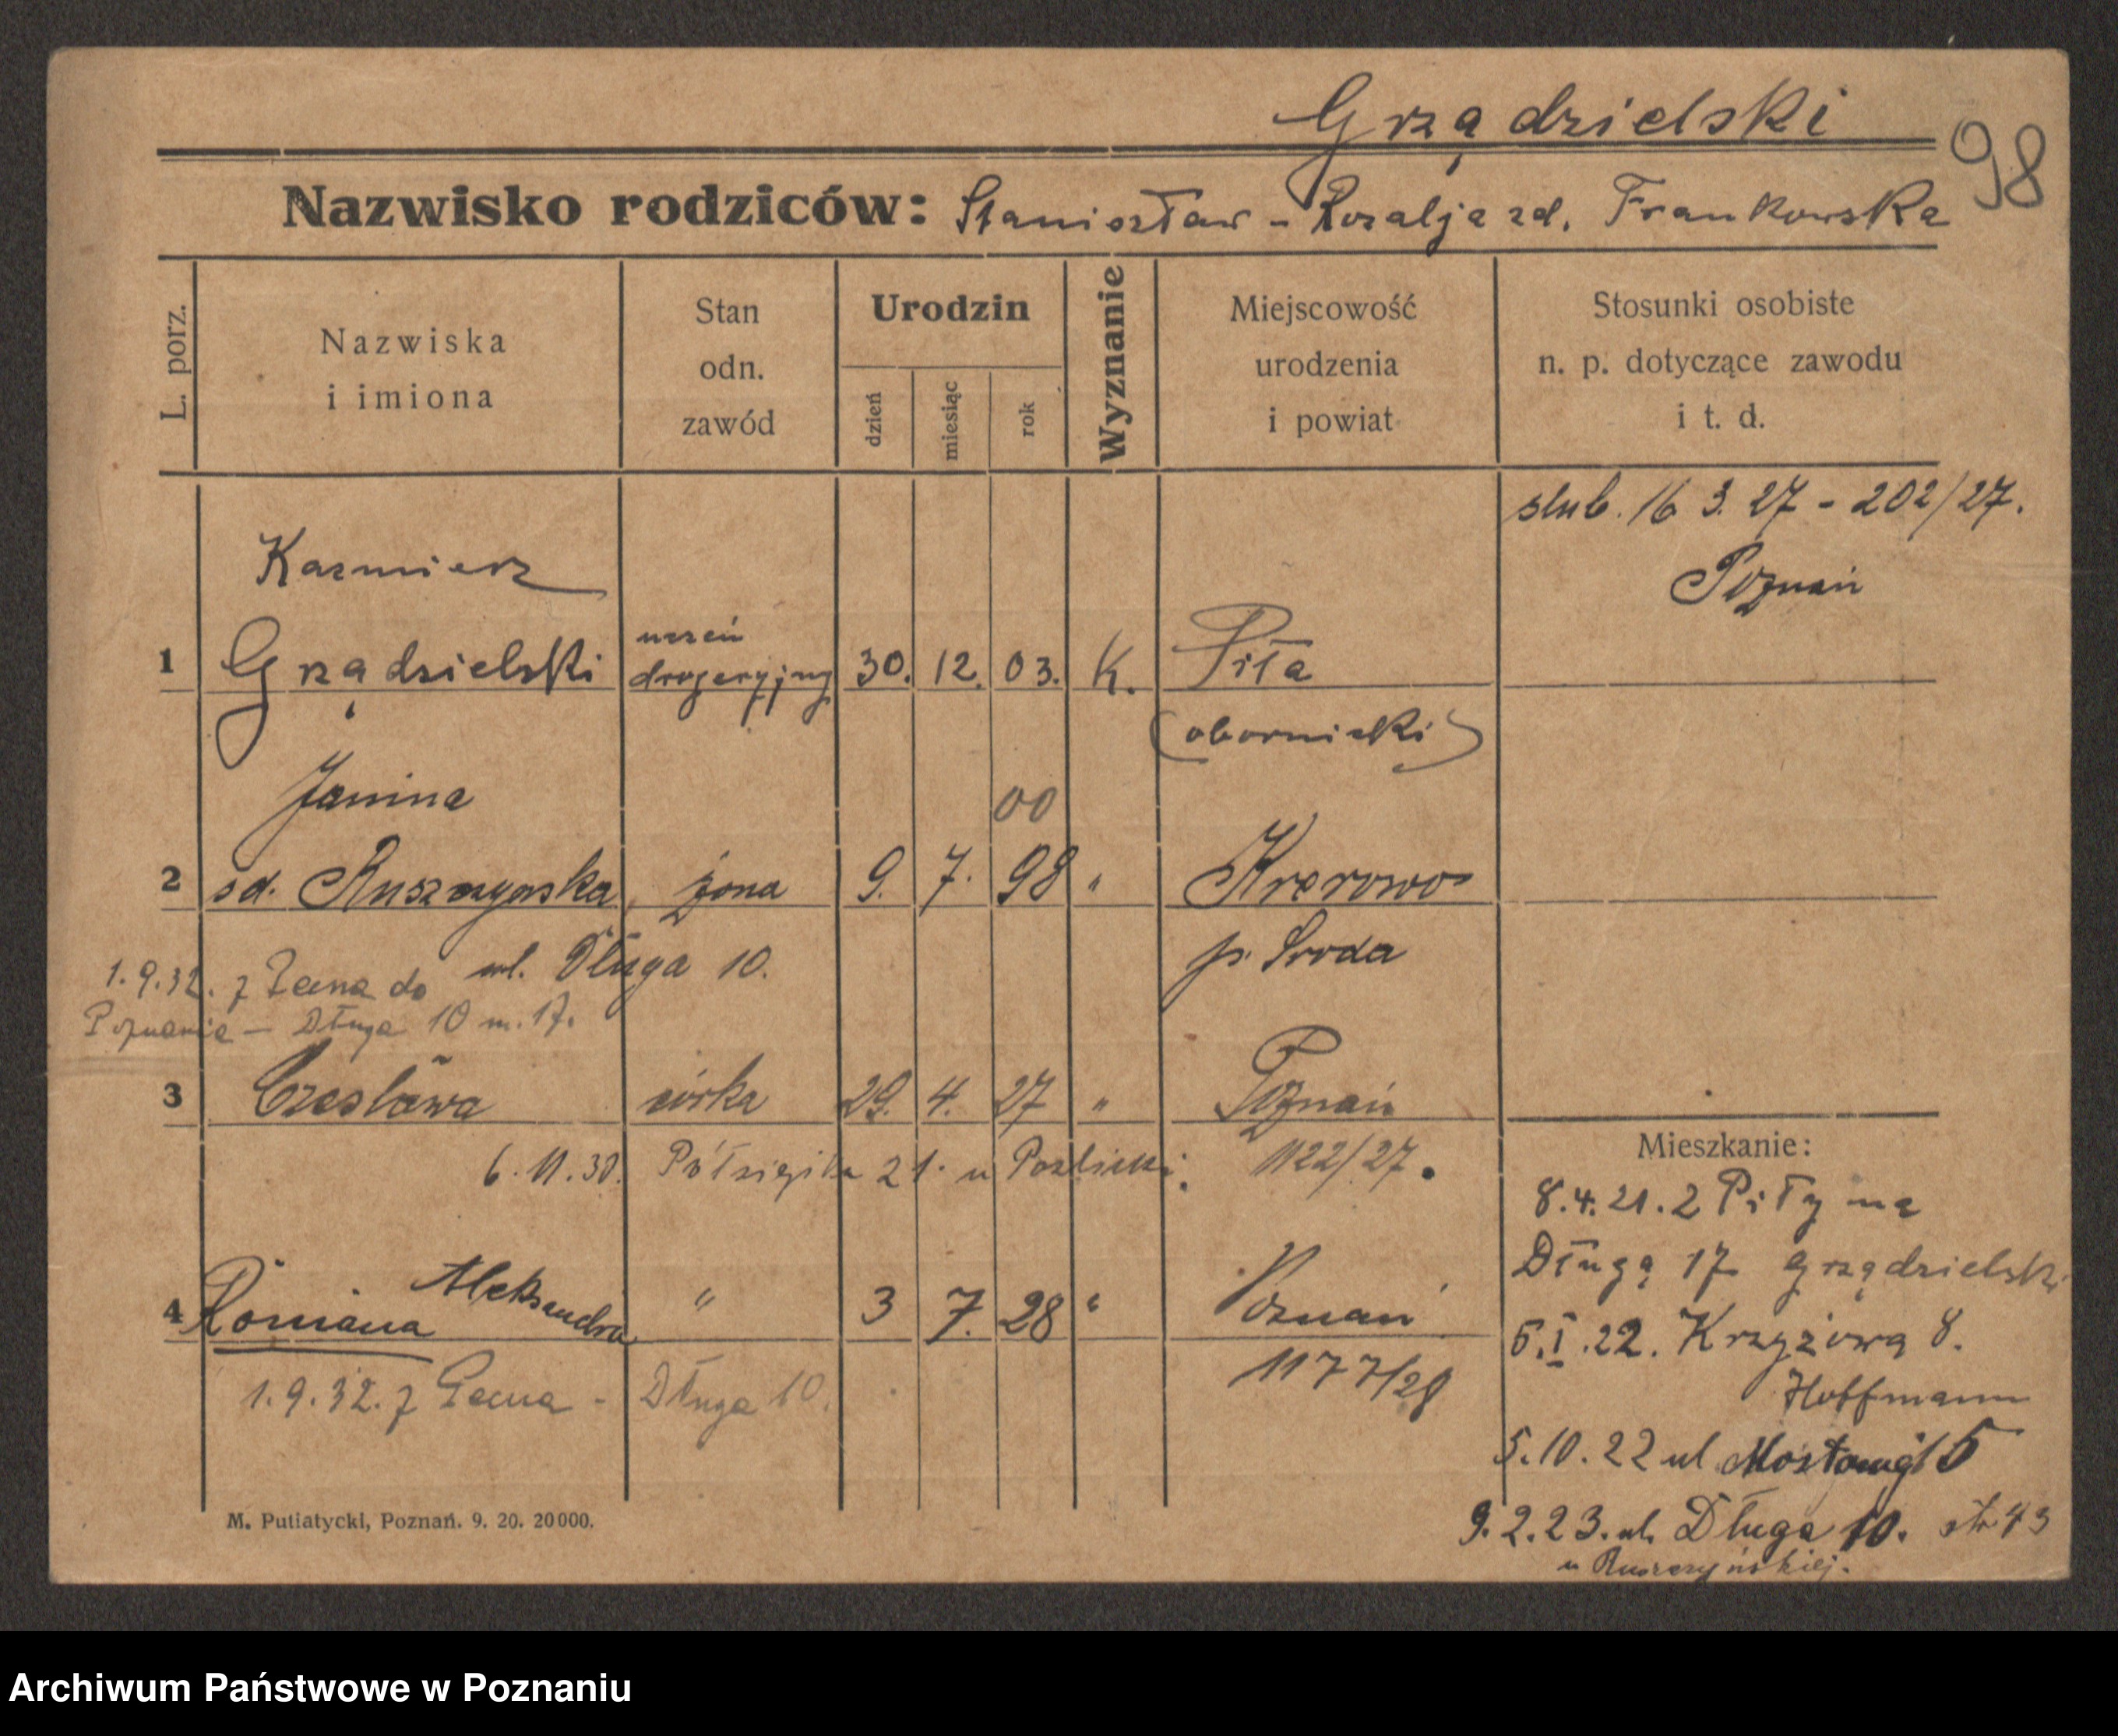 Grządzielski
98
Nazwisko rodziców: Stanisztaw - Rozalja zd. Frankowska
L. porz.
Nazwiska
i imiona
Stan
odn.
zawód
Urodzin
dzień
miesiąc
rok
Wyznanie
Miejscowość
urodzenia
i powiat
Stosunki osobiste
n. p. dotyczące zawodu
i t. d.
slub. 16 3. 27 - 202/27.
Poznań
Kazmierz
1 Grządzielski uczeń drogeryjny 30. 12. 03. K. Piła
(obornicki)
Janina
00
2 zd. Ruszczyńska, żona 9. 7. 98 " Krerowo
p. Sroda
ul. Długa 10.
1.9.32. z do
Poznania — Długa 10 m. 17.
3 Czesława córka 29. 4. 27 " Poznań
6. 11. 30. 21. u 1122/27.
4 Romana Aleksandra " 3 7. 28 " Poznań
1177/28
1.9.32. z - Długa 10.
Mieszkanie:
8.4.21. z Piły na
Długą 17 Grządzielski
5.I.22. Krzyżowa 8.
Hoffmann
5.10.22 ul Mostowa 15
9.2.23. ul. Długa 10.
u Ruszczyńskiej.
M. Putiatycki, Poznań. 9. 20. 20000.
Archiwum Państwowe w Poznaniu